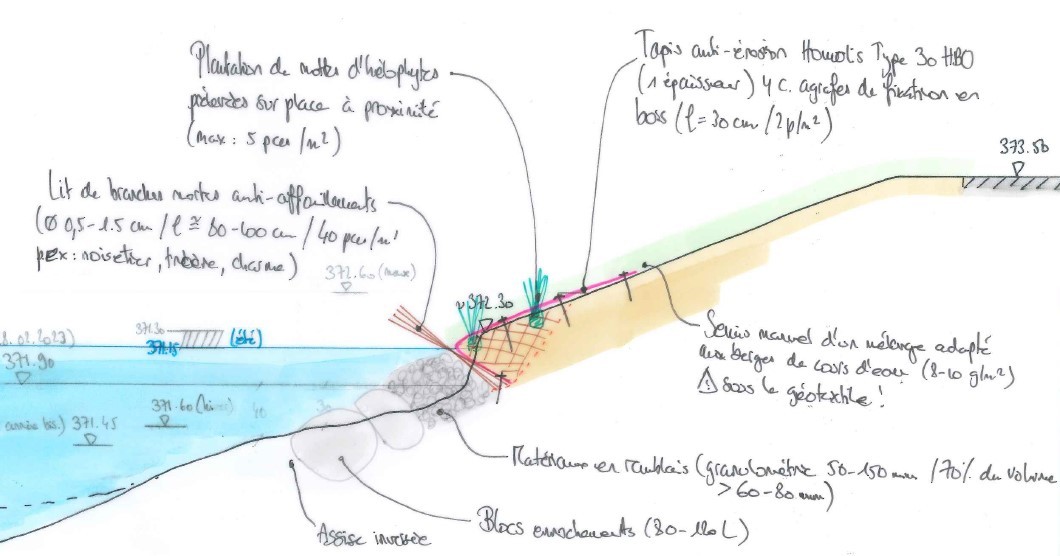 Plantation de mottes d'hélophytes
prélevées sur place à proximité
(max : 5 pces /m²)
Tapis anti-érosion Homats Type 30 HBO
(1 épaisseur) y c. agrafes de fixation en
bois (l = 30 cm / 2p/m²)
373.50
Lit de branches mortes anti-affouillements
(Ø 0,5-1.5 cm / l ≅ 80-100 cm / 40 pces/m'
p.ex : noisetier, troène, charme)
372.60 (max)
372.30
371.30
371.15 (été)
8.02.2023)
371.90
371.60
371.45
Semis manuel d'un mélange adapté
aux berges de cours d'eau (8-10 g/m²)
⚠ sous le géotextile !
Matériaux en remblais (granulométrie 50-150 mm /70% du volume
> 60-80 mm)
Blocs enrochements (80-110 L)
Assise inversée